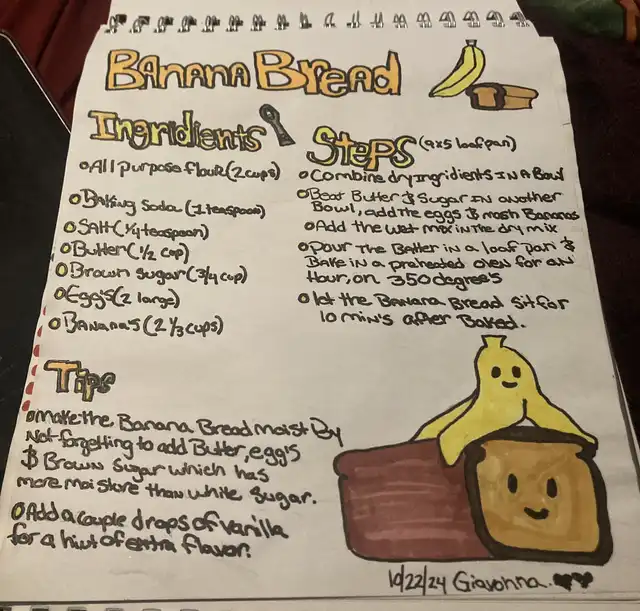 Banana Bread
Ingridients
All purpose flour (2 cups)
Baking Soda (1 teaspoon)
Salt (1/4 teaspoon)
Butter (1/2 cup)
Brown sugar (3/4 cup)
Egg's (2 large)
Banana's (2 1/3 cups)
Steps (9x5 loaf pan)
Combine dry ingridients in a Bowl
Beat Butter & Sugar in another
Bowl, add the eggs & mash Bananas
Add the wet mix in the dry mix
Pour the Batter in a loaf pan &
Bake in a preheated oven for an
Hour, on 350 degree's
let the Banana Bread sit for
10 min's after Baked.
Tips
make the Banana Bread moist By
Not forgetting to add Butter, egg's
& Brown Sugar which has
more moisture than white sugar.
Add a couple drops of vanilla
for a hint of extra flavor.
10/22/24 Giavonna.